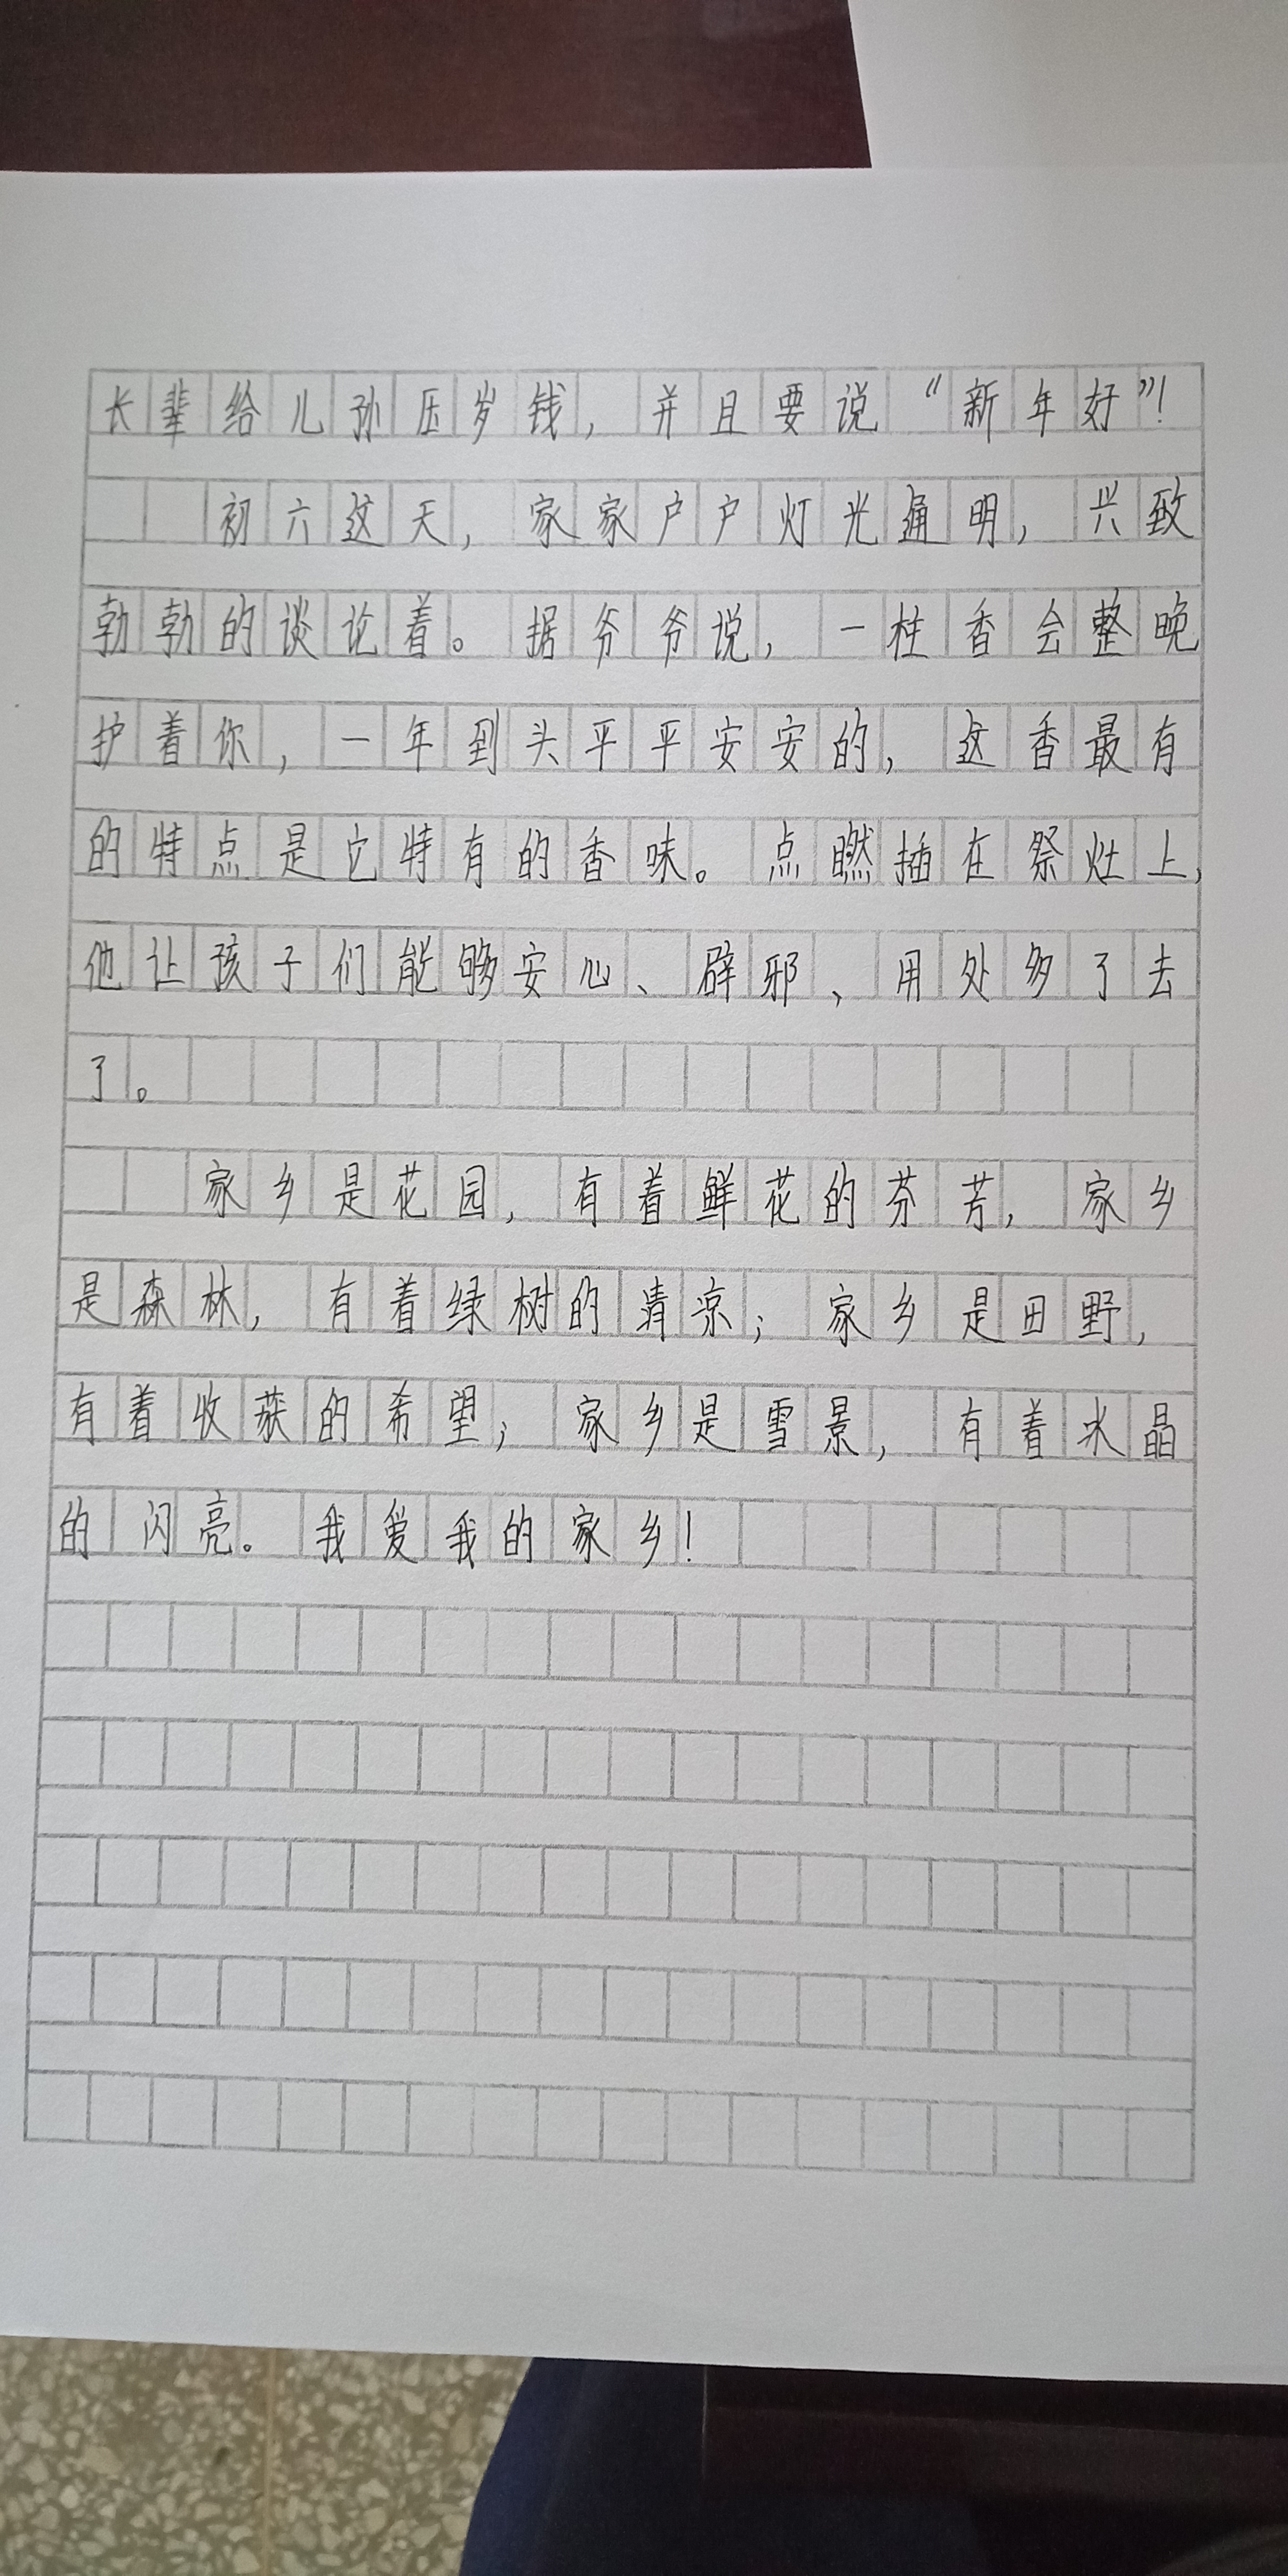 长辈给儿孙压岁钱，并且要说“新年好”！
初六这天，家家户户灯光通明，兴致
勃勃的谈论着。据爷爷说，一柱香会整晚
护着你，一年到头平平安安的，这香最有
的特点是它特有的香味。点燃插在祭灶上，
他让孩子们能够安心、辟邪、用处多了去
了。
家乡是花园，有着鲜花的芬芳，家乡
是森林，有着绿树的清凉；家乡是田野，
有着收获的希望；家乡是雪景，有着水晶
的闪亮。我爱我的家乡！